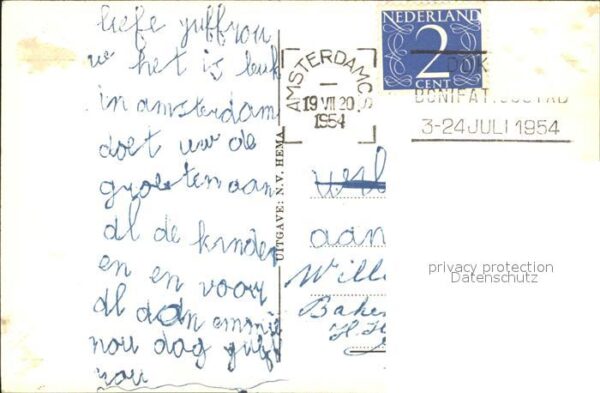 liefe juffrou
w het is leuk
in amsterdam
doet uw de
groeten aan
al de kinder
en en voor
al aan emmie
nou dag juff
rou
UITGAVE: N.V. HEMA
NEDERLAND
2
CENT
AMSTERDAM C.S
19 VII 20
1954
OOK
BONIFATIUSSTAD
3-24 JULI 1954
aan
Wille
Baker
privacy protection
Datenschutz